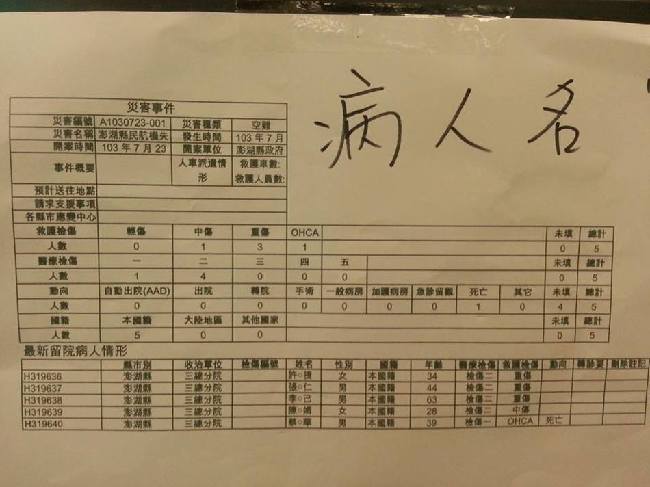 病人名
災害事件
災害編號 A1030723-001 災害種類 空難
災害名稱 澎湖縣民航機失 發生時間 103 年 7 月
開案時間 103 年 7 月 23 開案單位 澎湖縣政府
事件概要 人車派遣情形 救護車數: 救護人員數:
預計送往地點
請求支援事項
各縣市應變中心
救護檢傷 輕傷 中傷 重傷 OHCA 未填 總計
人數 0 1 3 1 0 5
醫療檢傷 一 二 三 四 五 未填 總計
人數 1 4 0 0 0 0 5
動向 自動出院(AAD) 出院 轉院 手術 一般病房 加護病房 急診留觀 死亡 其它 未填 總計
人數 0 0 0 0 0 0 0 1 0 4 5
國籍 本國籍 大陸地區 其他國家 未填 總計
人數 5 0 0 0 5
最新留院病人情形
縣市別 收治單位 檢傷編號 姓名 性別 國籍 年齡 醫療檢傷 救護檢傷 動向 轉診要 刪除註記
H319636 澎湖縣 三總分院 許○ 女 本國籍 34 檢傷二 重傷
H319637 澎湖縣 三總分院 張○仁 男 本國籍 44 檢傷二 重傷
H319638 澎湖縣 三總分院 李○己 男 本國籍 63 檢傷二 重傷
H319639 澎湖縣 三總分院 陳○ 女 本國籍 28 檢傷二 中傷
H319640 澎湖縣 三總分院 蔡○華 男 本國籍 39 檢傷一 OHCA 死亡